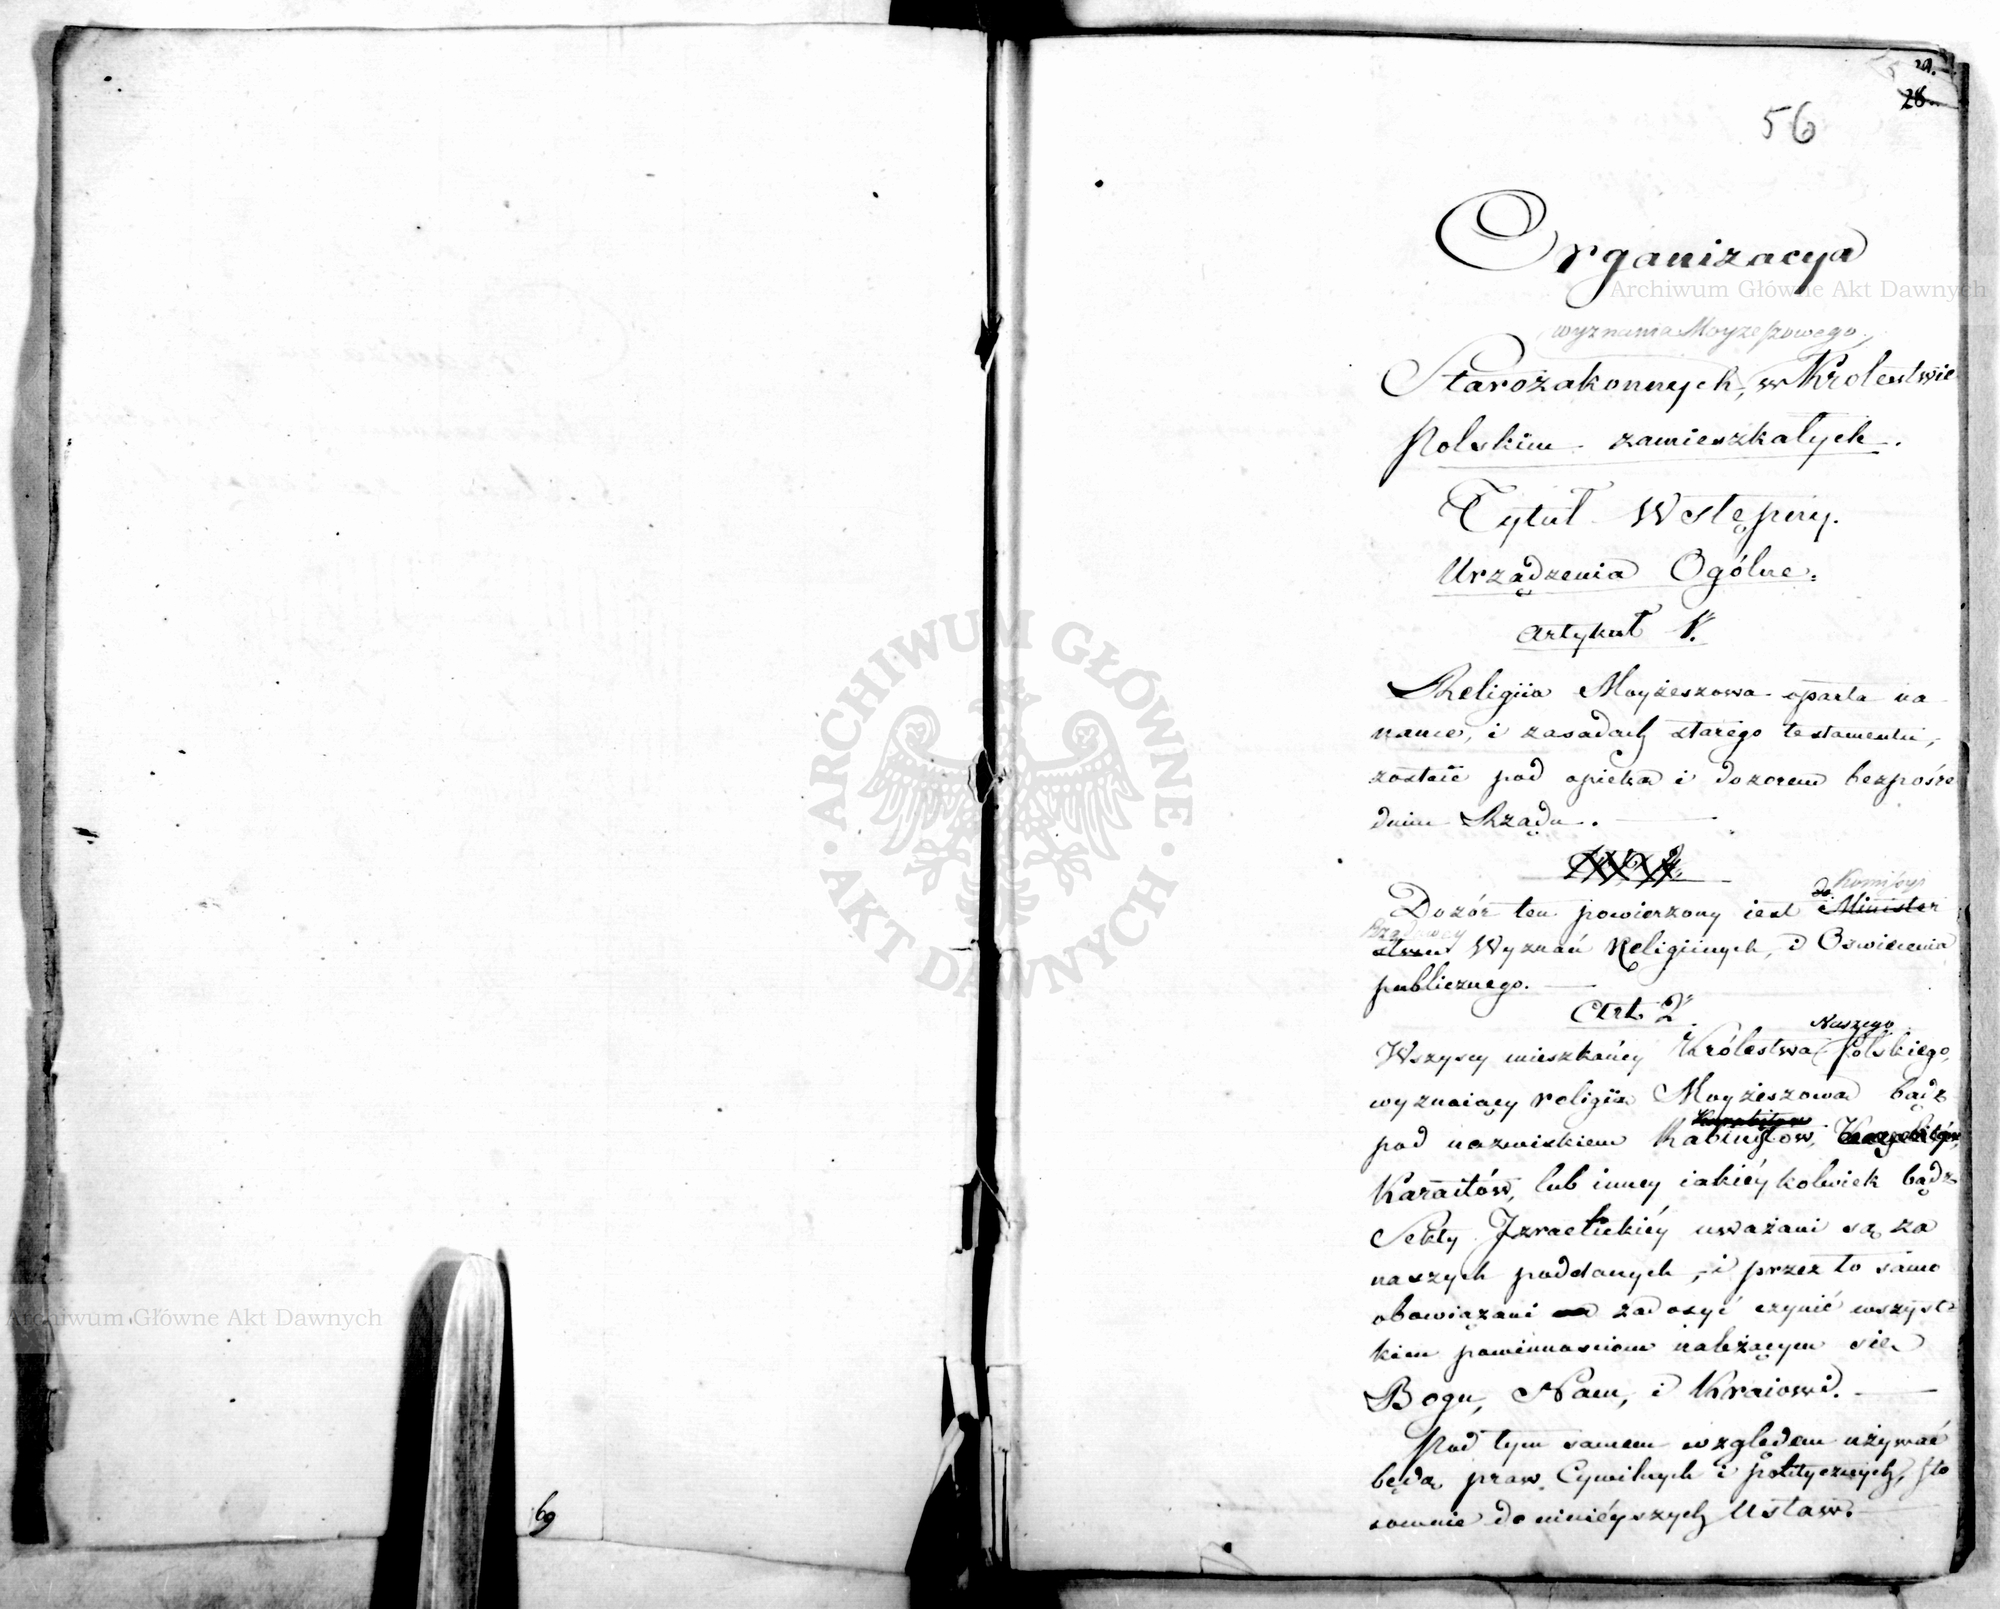 29.
28
56
Organizacya
wyznania Moyżeszowego,
Starozakonnych, w Krolestwie
Polskim zamieszkałych.
Tytuł Wstępny.
Urządzenia Ogólne.
Artykuł 1.
Religiia Moyżeszowa oparta na
nauce, i zasadach starego testamentu,
zostaie pod opieką i dozorem bezpośre
dnim Rządu.
Art. 2.
Komissyi
Dozór ten powierzony iest Minister
Rządowey
stwu Wyznań Religiinych, i Oswiecenia
publicznego.
Art. 2
Naszego
Wszyscy mieszkańcy Królestwa Polskiego,
wyznaiący religiią Moyżeszową bądź
pod nazwiskiem Rabinistów,
Karaitów, lub inney iakiéykolwiek bądz
Sekty Izraelickiéy uważani są za
naszych poddanych, i przez to samo
obowiązani zadosyć czynić wszyst
kim powinnosciom należącym się
Bogu, Nam, i Kraiowi.
Pod tym samem względem używać
będą praw Cywilnych i politycznych, sto
sownie do ninieyszych Ustaw.
69
Archiwum Główne Akt Dawnych
Archiwum Główne Akt Dawnych
ARCHIWUM GŁÓWNE
AKT DAWNYCH